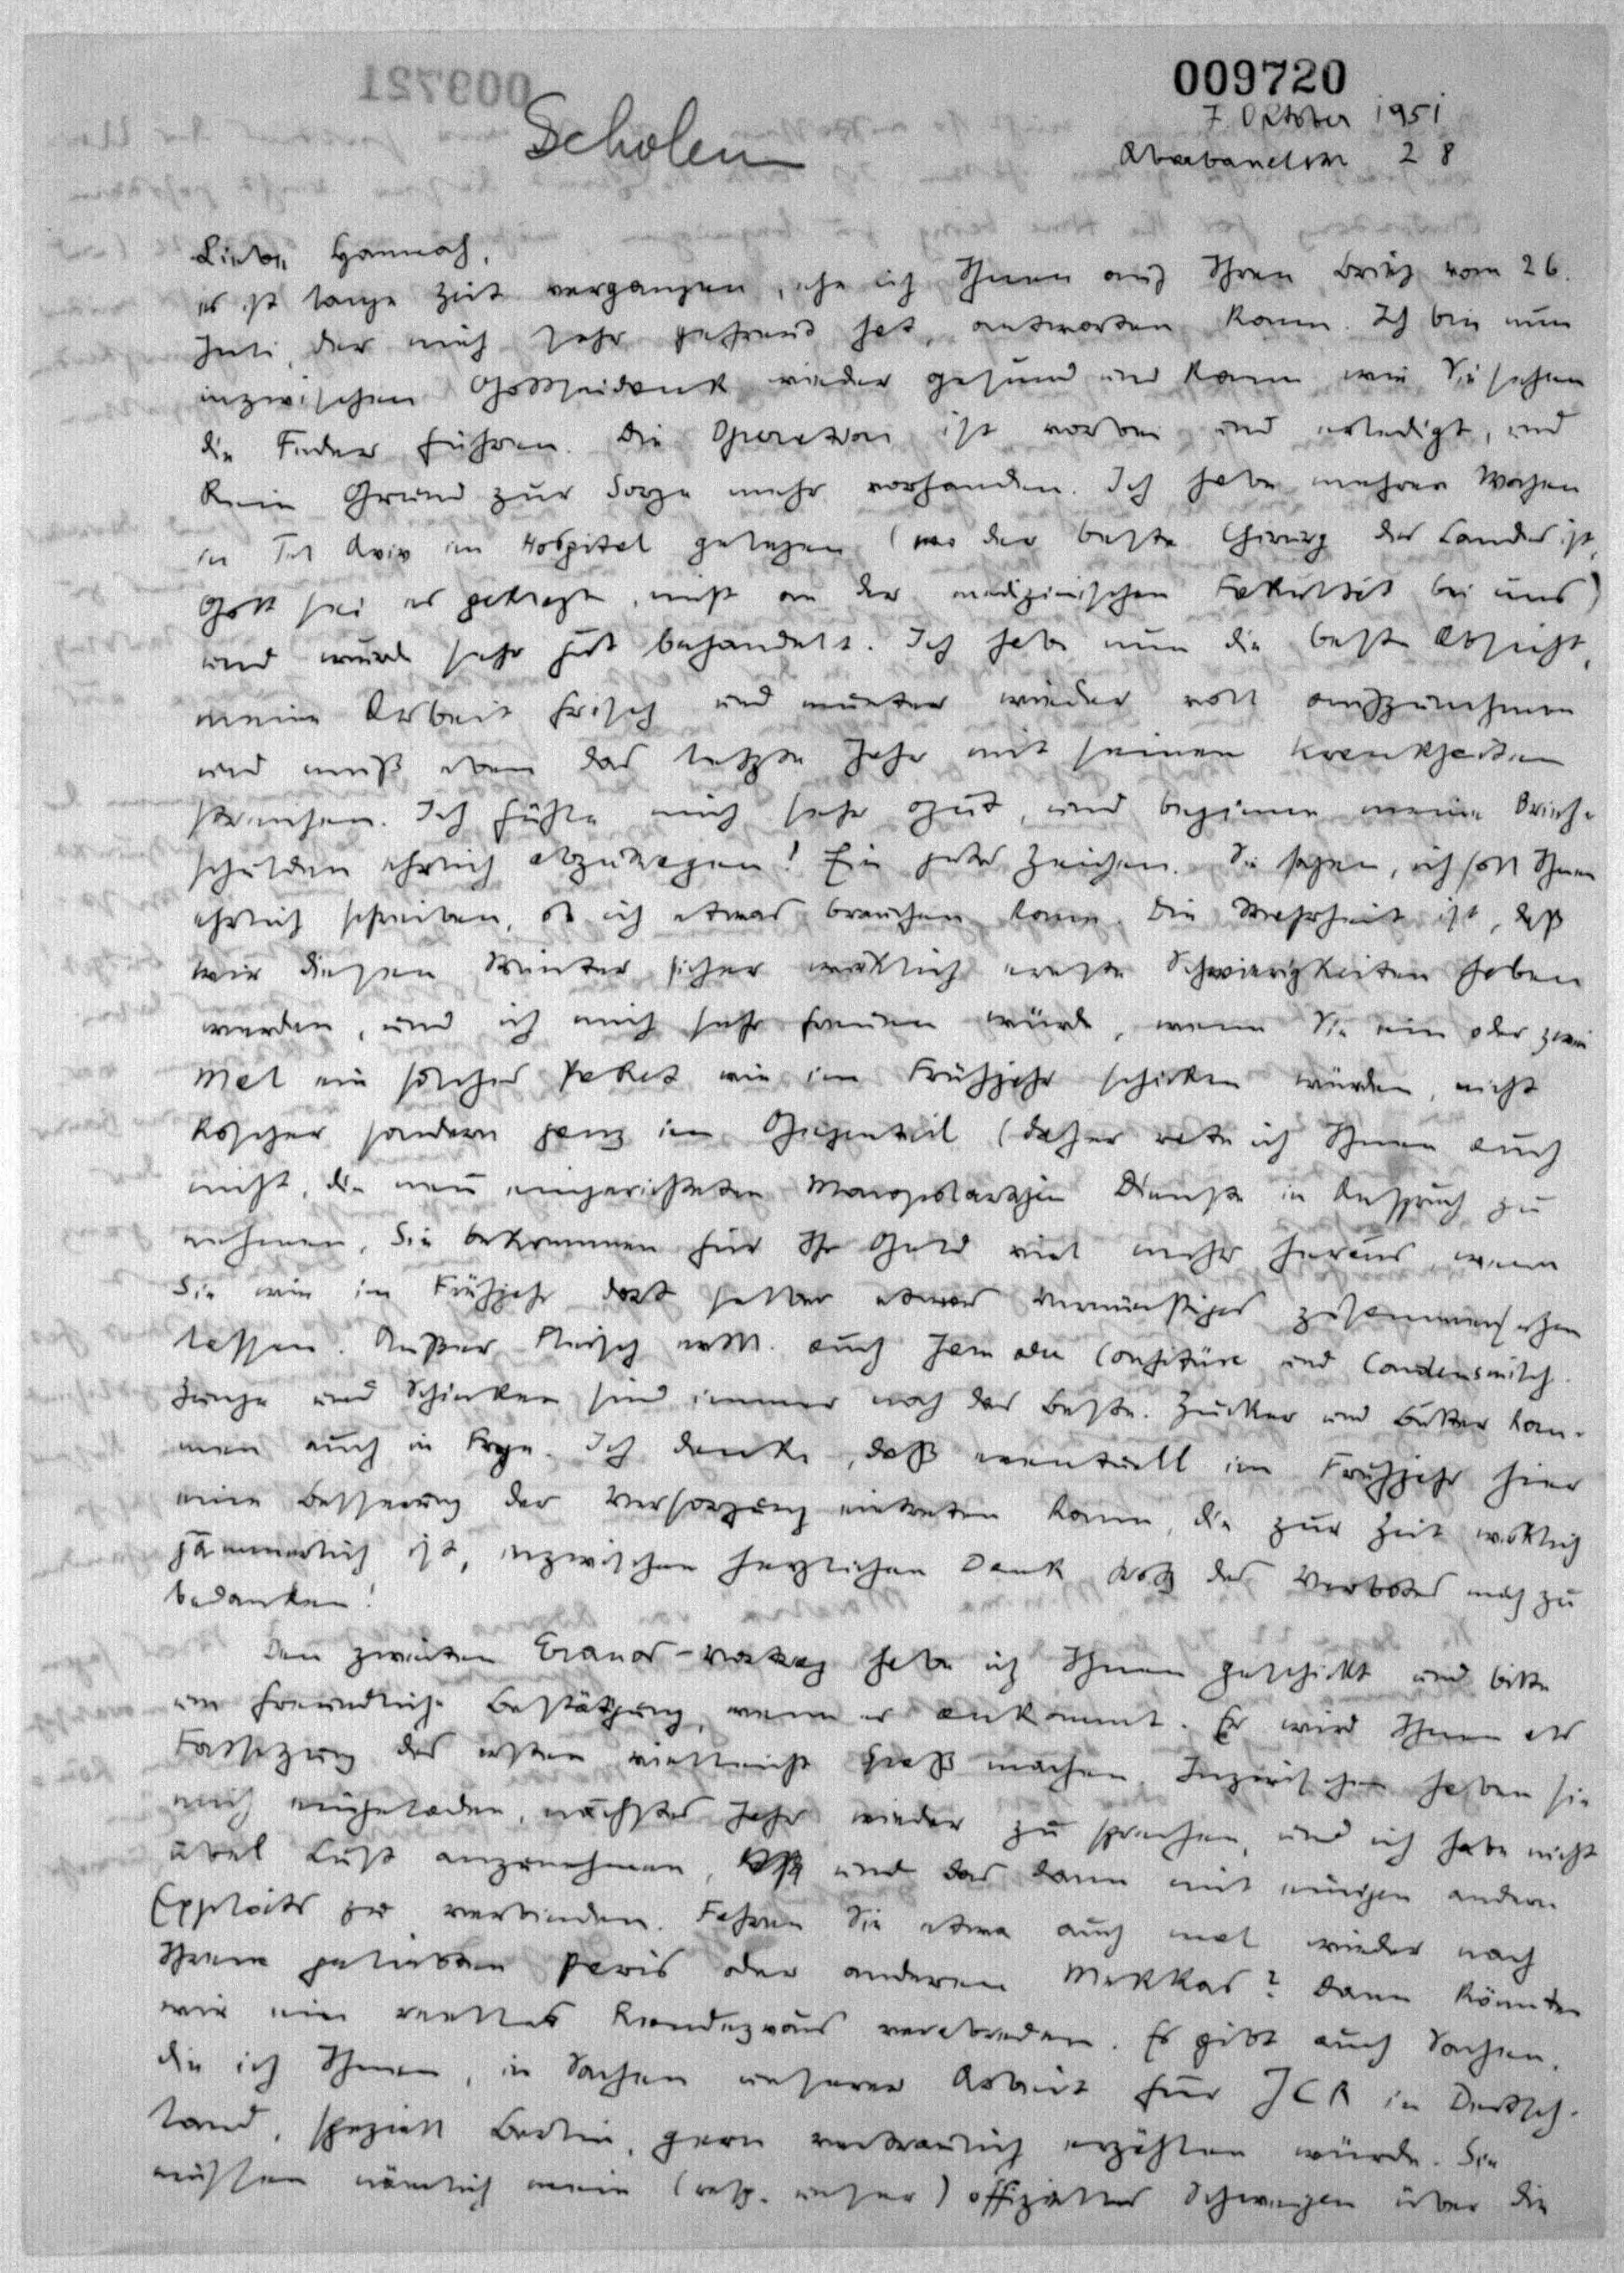 009721
009720
Scholem
7. Oktober 1951
Abarbanelstr 28
Liebe Hannah,
es ist lange Zeit vergangen, ehe ich Ihnen auf Ihren Brief vom 26.
Juli, der mich sehr gefreut hat, antworten kann. Ich bin nun
inzwischen Gottseidank wieder gesund und kann wie Sie sehen
die Feder führen. Die Operation ist vorbei und erledigt, und
kein Grund zur Sorge mehr vorhanden. Ich habe mehrere Wochen
in Tel Aviv im Hospital gelegen (wo der beste Chirurg des Landes ist,
Gott sei es geklagt, nicht an der medizinischen Fakultät bei uns)
und wurde sehr gut behandelt. Ich habe nun die beste Absicht,
meine Arbeit frisch und munter wieder voll aufzunehmen
und muß eben das letzte Jahr mit seinen Krankheiten
streichen. Ich fühle mich sehr gut, und beginne meine Brief-
schulden ehrlich abzutragen! Ein gutes Zeichen. Sie sagen, ich soll Ihnen
ehrlich schreiben, ob ich etwas brauchen kann. Die Wahrheit ist, daß
wir diesen Winter sicher wirklich ernste Schwierigkeiten haben
werden, und ich mich sehr freuen würde, wenn Sie ein oder zwei
Mal ein solches Paket wie im Frühjahr schicken würden, nicht
koscher sondern ganz im Gegenteil (daher rate ich Ihnen auch
nicht, die neu eingerichteten Dienste in Anspruch zu
nehmen, Sie bekommen für Ihr Geld viel mehr heraus, wenn
Sie wie im Frühjahr dort selber etwas Vernünftiges zusammensetzen
lassen. Außer Fleisch evtl. auch Jam oder Confitüre und Condensmilch.
Zunge und Schinken sind immer noch das Beste. Zucker und Butter kom-
men auch in Frage. Ich denke, daß eventuell im Frühjahr hier
eine Besserung der Versorgung eintreten kann, die zur Zeit wirklich
jämmerlich ist, inzwischen herzlichen Dank trotz des Verbotes mich zu
bedanken!
Den zweiten Eranos-Vortrag habe ich Ihnen geschickt und bitte
um freundliche Bestätigung, wenn er ankommt. Er wird Ihnen als
Fortsetzung des ersten vielleicht Spaß machen. Inzwischen haben sie
mich eingeladen, nächstes Jahr wieder zu sprechen, und ich habe nicht
übel Lust anzunehmen, und das dann mit einigen andern
Exploits zu verbinden. Fahren Sie etwa auch mal wieder nach
Ihrem geliebten Paris oder anderen Mekkas? Dann könnten
wir ein reelles Rendezvous verabreden. Es gibt auch Sachen,
die ich Ihnen, in Sachen unserer Arbeit für JCR in Deutsch-
land, speziell Berlin, gern vertraulich erzählen würde. Sie
müssen nämlich mein (resp. unser) offizielles Schweigen über die